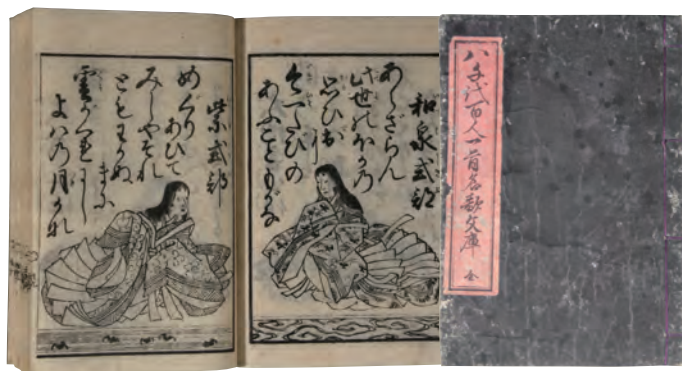 八千代百人一首名歌文庫 全
和泉式部
あらざらん
此世のほかの
思ひ出に
今一たびの
あふこともがな
紫式部
めぐりあひて
みしやそれ
ともわかぬ
まに
雲がくれにし
よハの月かな